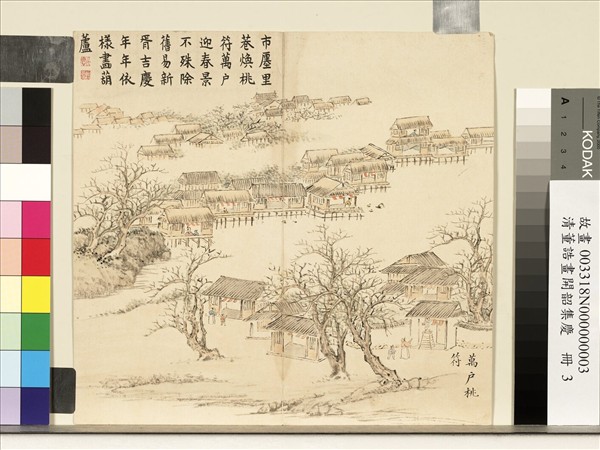 市廛里
巷煥桃
符萬戶
迎春景
不殊除
舊易新
胥吉慶
年年依
樣畫葫
蘆
萬戶桃
符
KODAK
A 1 2 3 4
故畫 003318N000000003
清董誥畫開韶集慶 冊 3